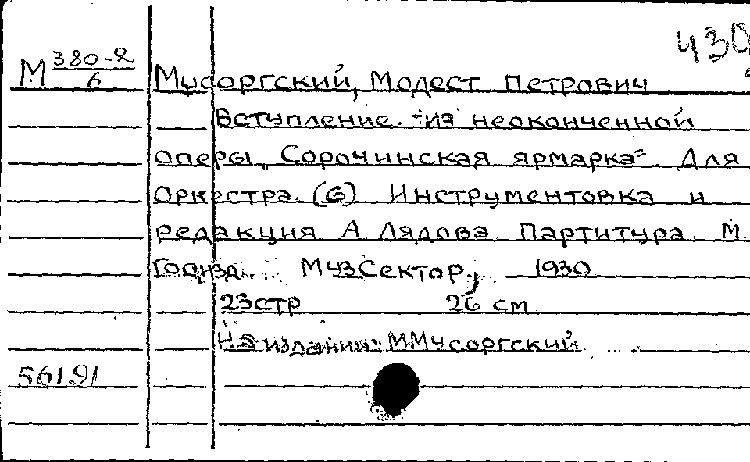 430
М 380-2/6
Мусоргский, Модест Петрович
Вступление из неоконченной
оперы „Сорочинская ярмарка" Для
оркестра. (G) Инструментовка и
редакция А Лядова Партитура М.
Госизд. МузСектор, 1930
23стр 26 см
На издании: ММусоргский
56191